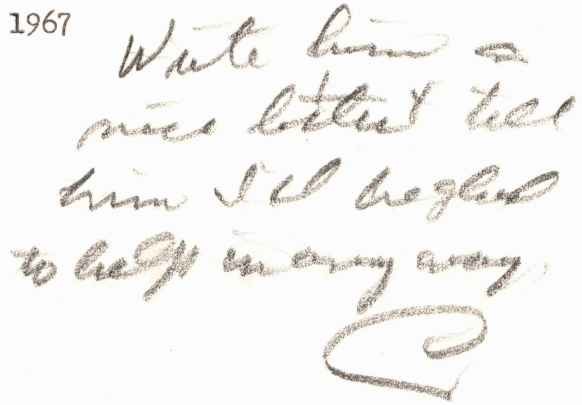 1967
Write him a
nice letter & tell
him I'd be glad
to help in any way